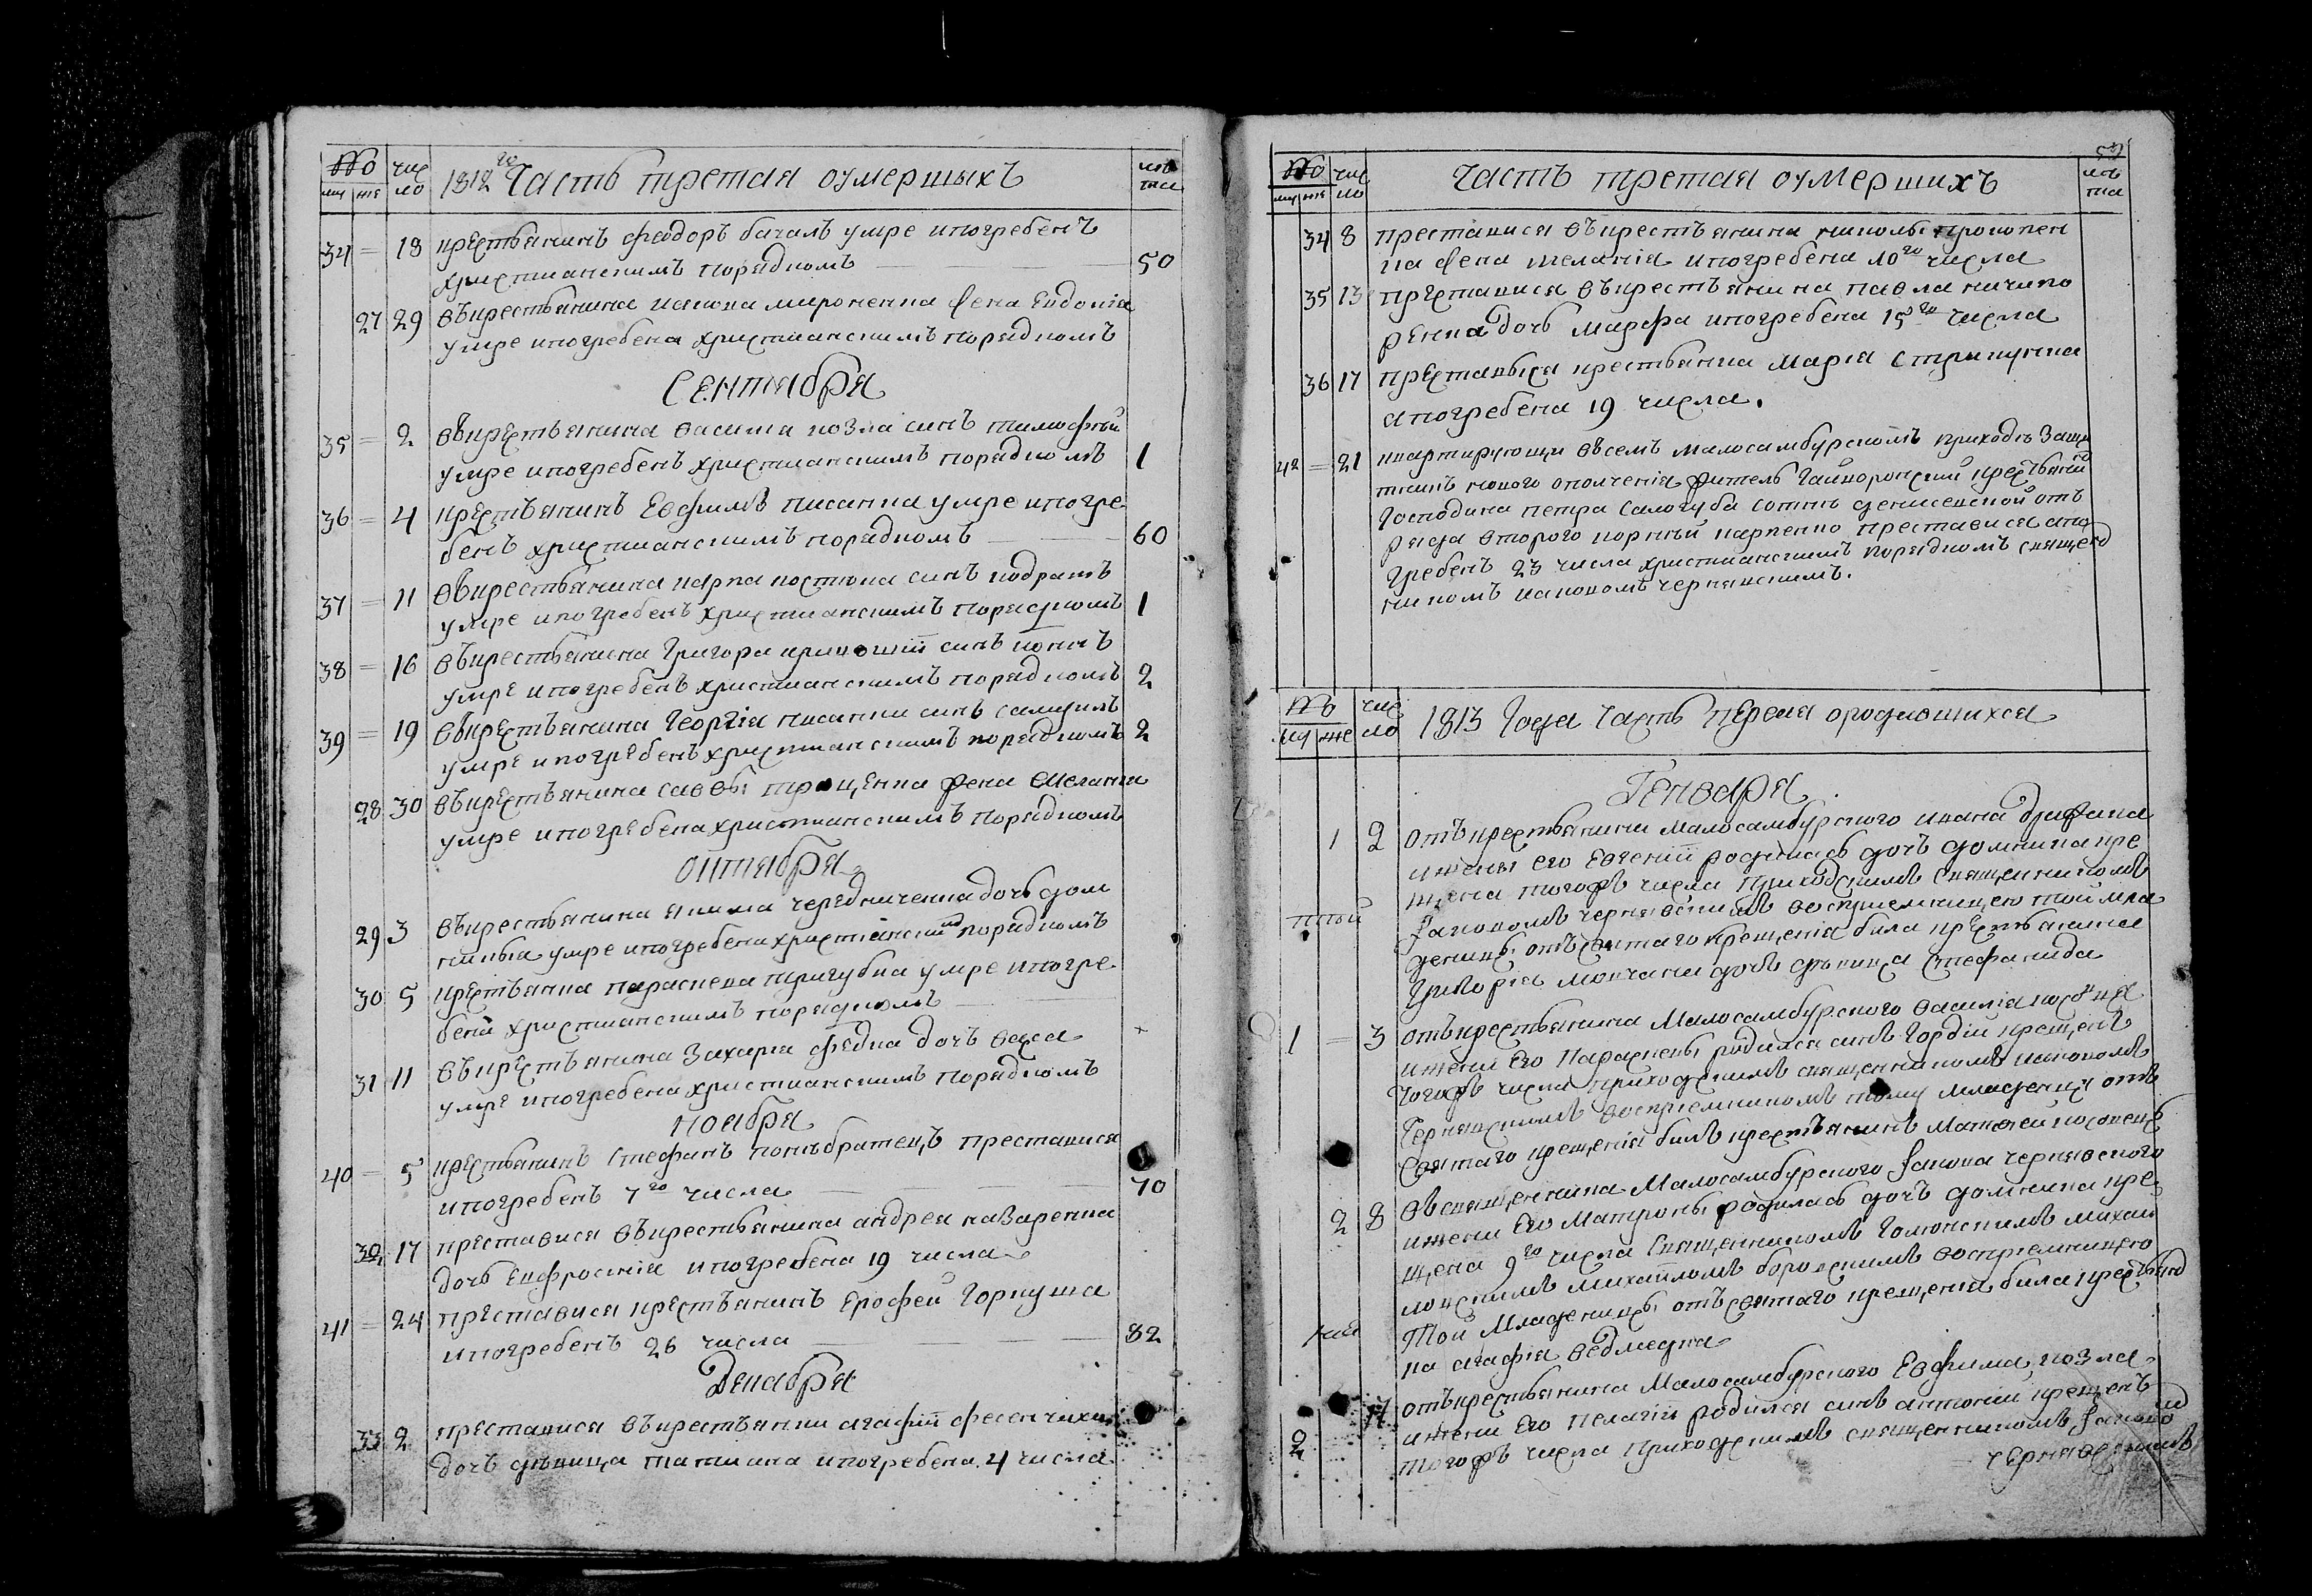 No чис 1812го Часть третая оумершыхъ лѣ
му же ло та
34 = 18 крестьянинъ Федоръ бачалъ умре ипогребенъ
христианскимъ порядкомъ 50
27 29 Вькрестьянина иакова мироненка жена Евдокия
умре ипогребена христианскимъ порядкомъ
Сентября
35 = 2 Вькрестьянина василия козла синъ тимофей
умре ипогребенъ христианскимъ порядкомъ 1
36 = 4 крестьянинъ Евфимъ писанка умре ипогре
бенъ христианскимъ порядкомъ 60
37 = 11 Вькрестьянина карпа костюка синъ кодратъ
умре ипогребенъ христианскимъ порядкомъ 1
38 = 16 Вькрестьянина Григора синъ
умре ипогребенъ христианскимъ порядкомъ 2
39 = 19 Вькрестьянина Георгія писанки синъ
умре ипогребенъ христианскимъ порядкомъ 2
28 30 Вькрестьянина саввы троценка жена Мелания
умре ипогребена христианскимъ порядкомъ
октября
29 3 Вькрестьянина якима чередниченка дочь дом
никия умре ипогребена христіанским порядкомъ
30 5 крестьянка параскева тригубка умре ипогре
бена христианскимъ порядкомъ
31 11 Вькрестьянина Захария федка дочь васса
умре ипогребена христианскимъ порядкомъ
ноября
40 = 5 крестьянинъ Стефанъ панъбратецъ преставися
ипогребенъ 7го числа 70
17 преставися Вькрестьянина андрея назаренка
дочь Евфросинія ипогребена 19 числа
41 = 24 преставися крестьянинъ Ерофей Горкуша
ипогребенъ 26 числа 82
Декабря
33 2 преставися Вькрестьянки агафіи фесенчихи
дочь дѣвица татиана ипогребена 4 числа
No чис Часть третая оумершихъ лѣ
му же ло та
34 8 преставися Вькрестьянина николы прокопен
ка жена меланія ипогребена 10го числа
35 13 преставися Вькрестьянина павла ничипо
ренка дочь марфа ипогребена 15го числа
36 17 преставыся крестьянка Мария Стрикунка
апогребена 19 числа.
42 = 21 квартирующи Вселѣ малосамбурскомъ приходѣ Защи
тникъ нового ополченія житель Гайворонский крестьянин
Господина петра Салогуба сотнѣ денисевской отъ
ряда второго корній карпенко преставися апо
гребенъ 23 числа христианскимъ порядкомъ священ
никомъ иаковомъ чернявскимъ.
No чис 1813 Года Часть первая ородившихся
му же ло
Генваря
1 2 Отъкрестьянина малосамбурского ивана
ижены его Евгении родилась дочь домникиа кре
щена тогожъ числа приходскимъ священникомъ
Іаковомъ чернявскимъ восприемницею той мла
деницы отъсвятаго крещенія била крестьянина
Григория мовчана дочь дѣвица Стефанида
1 = 3 Отъкрестьянина Малосамбурского василія
ижени его Параскевы родился синъ Гордій крещенъ
Тогожъ числа приходскимъ священникомъ иаковомъ
Чернявскимъ восприемникомъ тому младенцу отъ
Святаго крещенія билъ крестьянинъ Матвей
2 8 Всвященника Малосамбурского Іакова чернявского
ижени его Матроны родилась дочь домникиа кре
щена 9го числа Священникомъ
михайломъ восприемницею
Той Младеницы отъсвятаго крещенія била крестьян
ка агафія ведмедка
2 14 Отъкрестьянина Малосамбурского Евфима козла
ижени его пелагіи родился синъ антоний крещенъ
тогожъ числа приходскимъ священникомъ Іаково
чернявскимъ